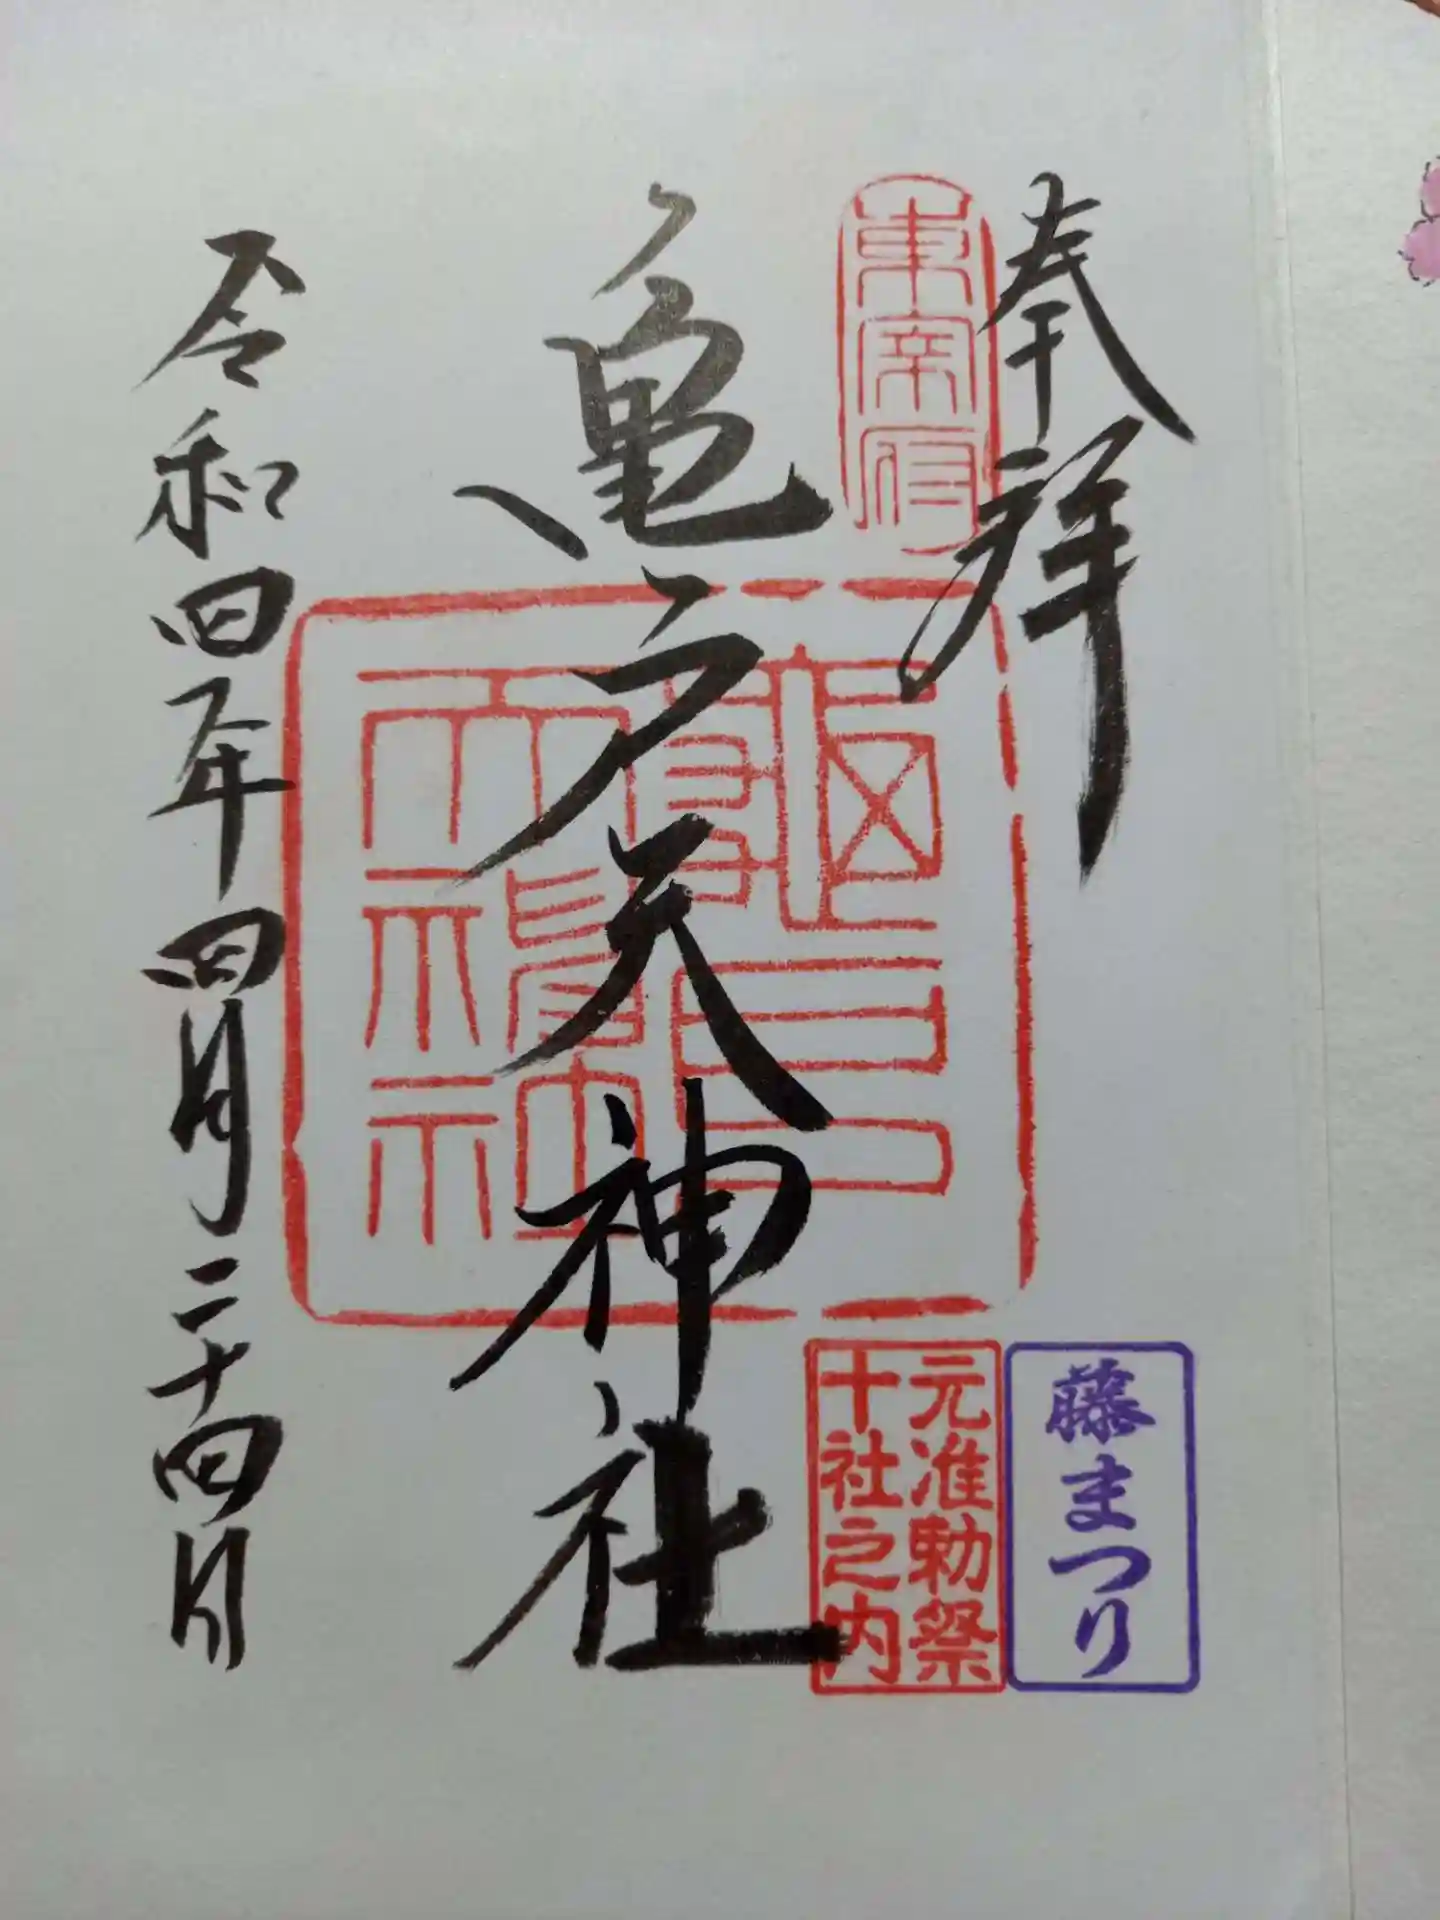 奉拝
東宰府
藤まつり
元准勅祭
十社之内
亀戸天神社
龜戸
天神社
令和四年四月二十四日